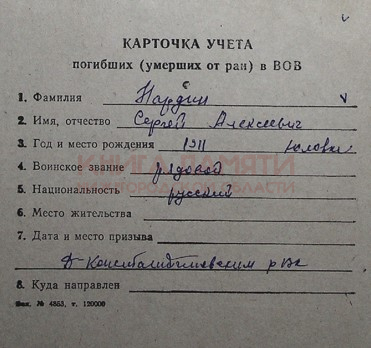 КАРТОЧКА УЧЕТА
погибших (умерших от ран) в ВОВ
1. Фамилия Нардин
2. Имя, отчество Сергей Алексеевич
3. Год и место рождения 1911 Юловка
КНИГА ПАМЯТИ
4. Воинское звание рядовой
5. Национальность русский
6. Место жительства
7. Дата и место призыва
Д-Константиновским рвк
8. Куда направлен
Зак. № 4853, т. 120000